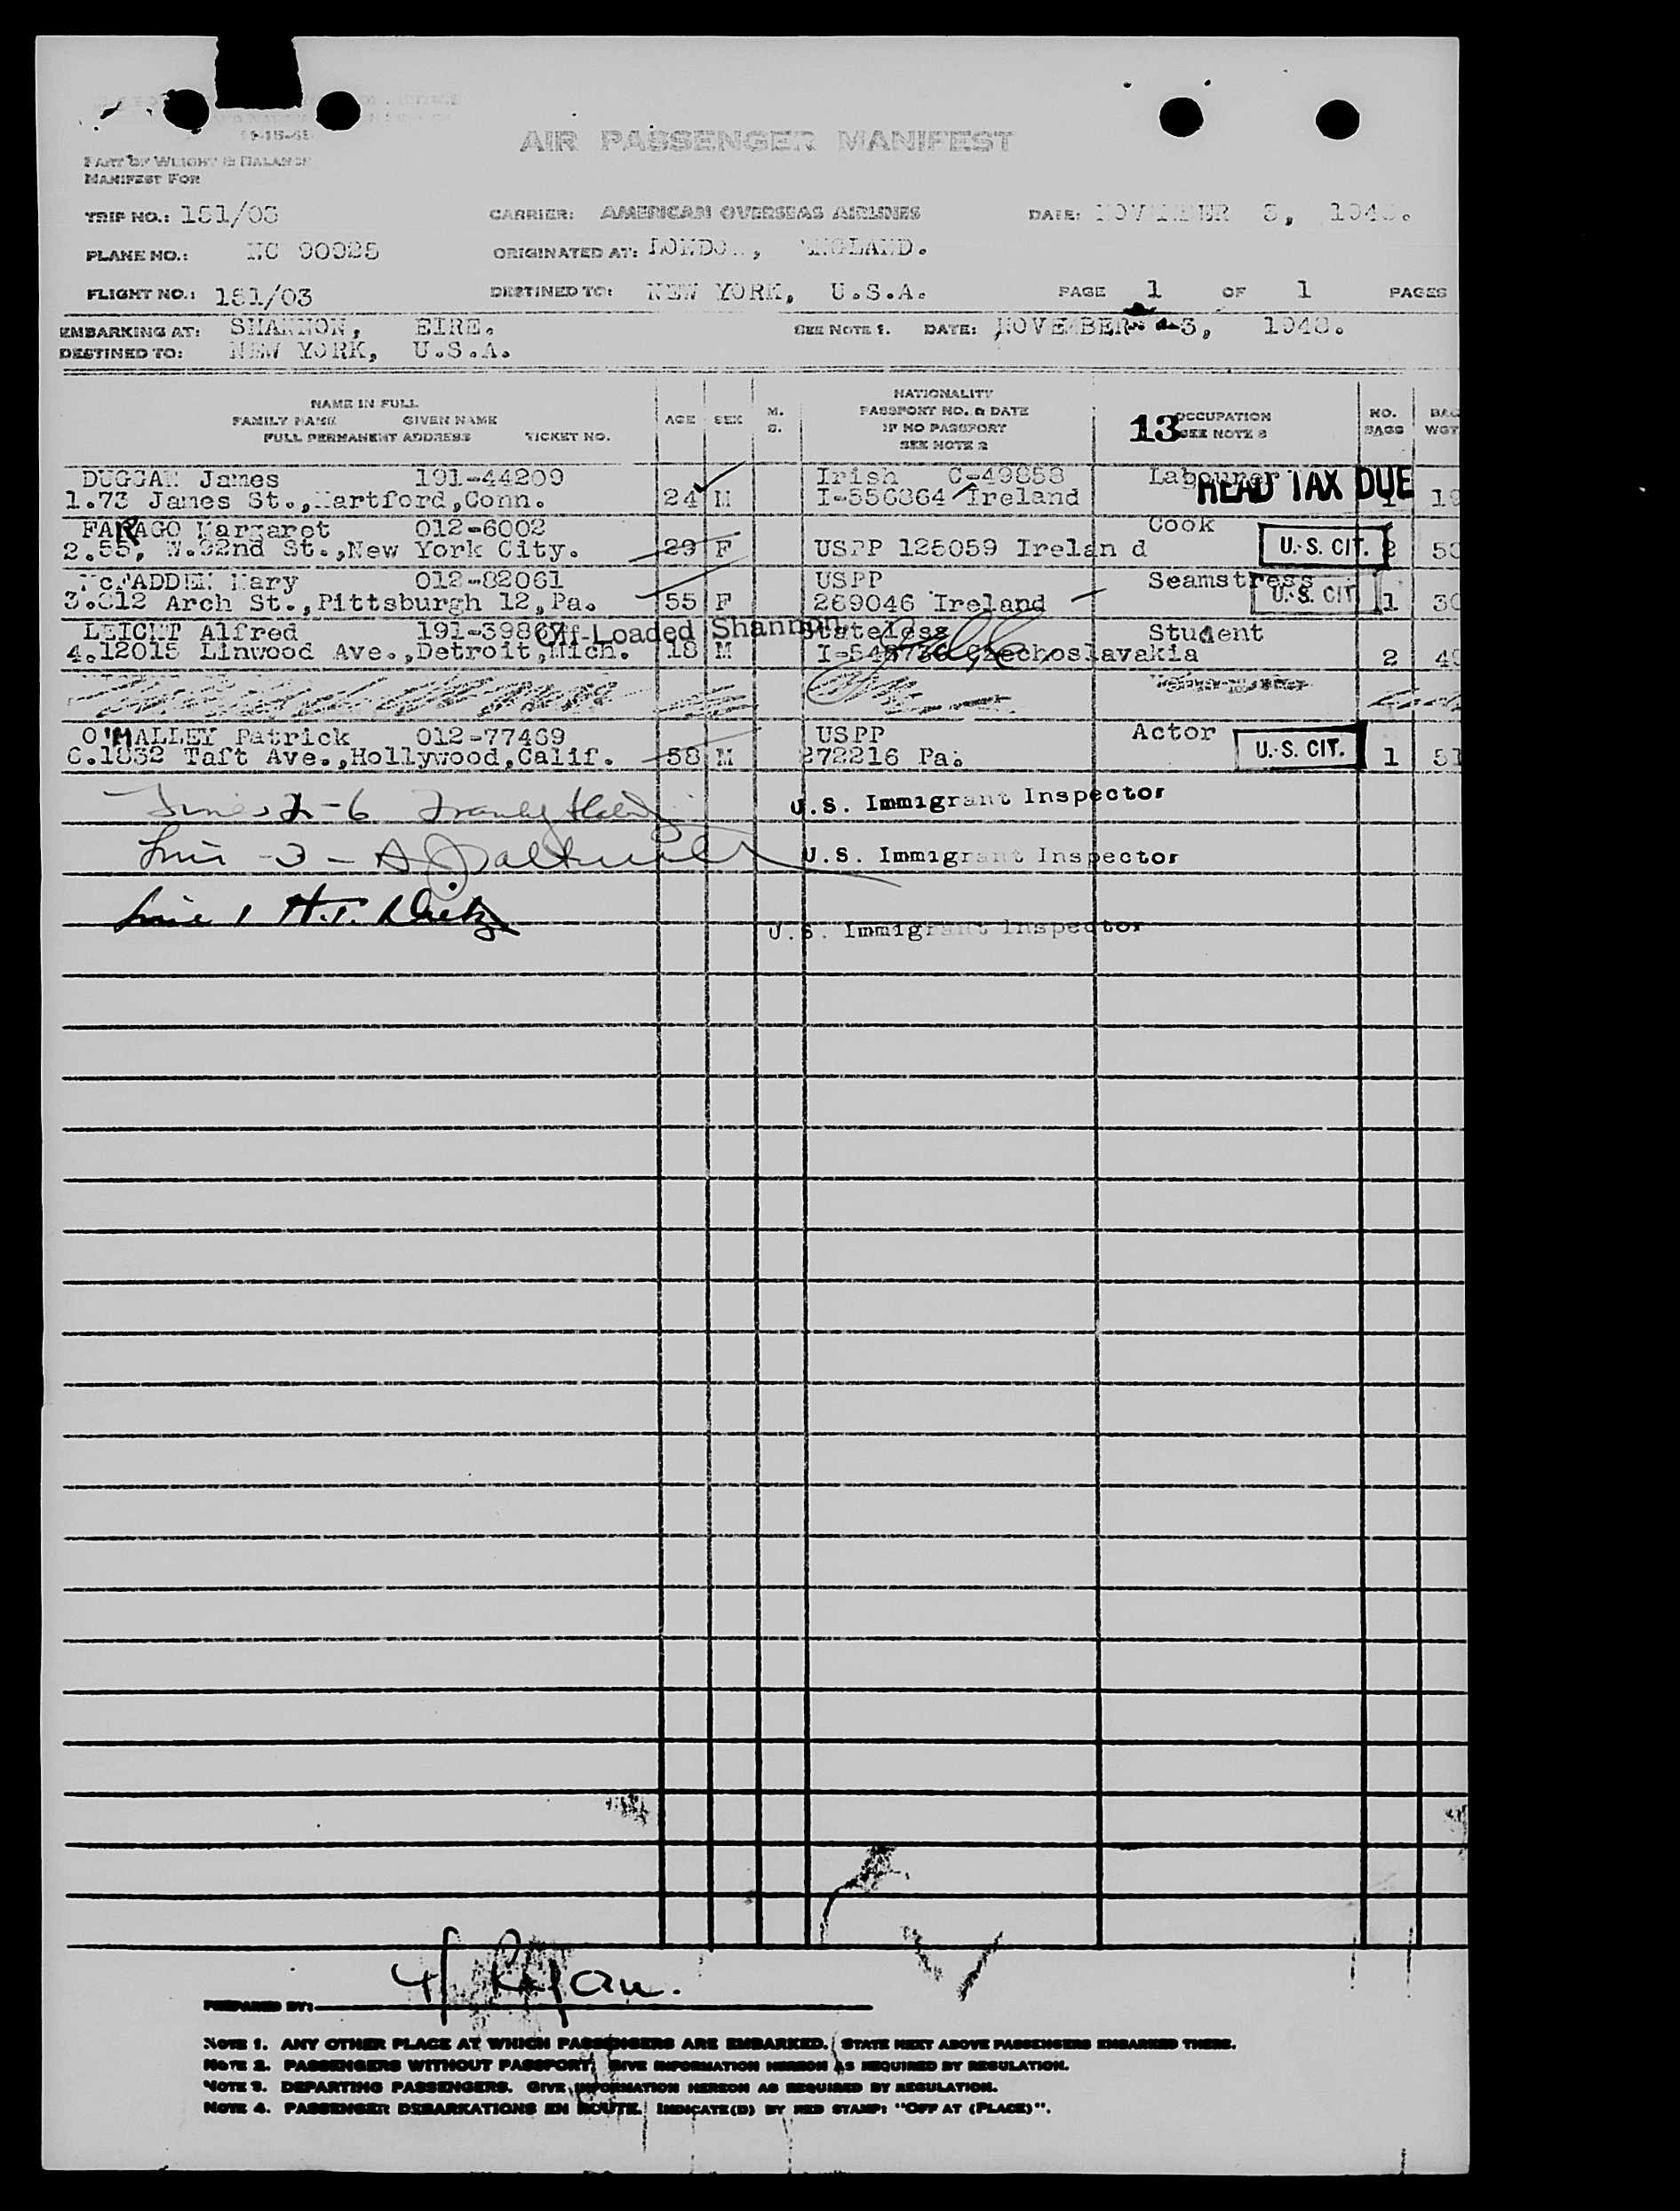 AIR PASSENGER MANIFEST
PART OF WEIGHT & BALANCE
MANIFEST FOR
TRIP NO.: 151/03 CARRIER: AMERICAN OVERSEAS AIRLINES DATE: NOVEMBER 3, 1948.
PLANE NO.: NC 90925 ORIGINATED AT: LONDON, ENGLAND.
FLIGHT NO.: 151/03 DESTINED TO: NEW YORK, U.S.A. PAGE 1 OF 1 PAGES
EMBARKING AT: SHANNON, EIRE. SEE NOTE 1. DATE: NOVEMBER 3, 1948.
DESTINED TO: NEW YORK, U.S.A.
NAME IN FULL
FAMILY NAME GIVEN NAME
FULL PERMANENT ADDRESS TICKET NO.
AGE SEX M. S.
NATIONALITY
PASSPORT NO. & DATE
IF NO PASSPORT
SEE NOTE 2
13 OCCUPATION
SEE NOTE 3
NO. BAGS
BAG WGT
DUGGAN James 191-44209 Irish C-49858 Labourer HEAD TAX DUE
1.73 James St.,Hartford,Conn. 24 M I-556864 Ireland 1 19
FARAGO Margaret 012-6002 Cook
2.55, W.92nd St.,New York City. 29 F USPP 125059 Irelan d U.S. CIT. 2 50
McFADDEN Mary 012-82061 USPP Seamstress
3.812 Arch St.,Pittsburgh 12,Pa. 55 F 269046 Ireland U.S. CIT 1 30
LEICHT Alfred 191-39867 Off-Loaded Shannon. Stateless Student
4.12015 Linwood Ave.,Detroit,Mich. 18 M Czechoslavakia 2
O'MALLEY Patrick 012-77469 USPP Actor
6.1832 Taft Ave.,Hollywood,Calif. 58 M 272216 Pa. U.S. CIT. 1 51
U.S. Immigrant Inspector
U.S. Immigrant Inspector
U.S. Immigrant Inspector
PREPARED BY:
NOTE 1. ANY OTHER PLACE AT WHICH PASSENGERS ARE EMBARKED. STATE NEXT ABOVE PASSENGERS EMBARKED THERE.
NOTE 2. PASSENGERS WITHOUT PASSPORT. GIVE INFORMATION HEREON AS REQUIRED BY REGULATION.
NOTE 3. DEPARTING PASSENGERS. GIVE INFORMATION HEREON AS REQUIRED BY REGULATION.
NOTE 4. PASSENGER DEBARKATIONS EN ROUTE. INDICATE(D) BY RED STAMP: "OFF AT (PLACE)".